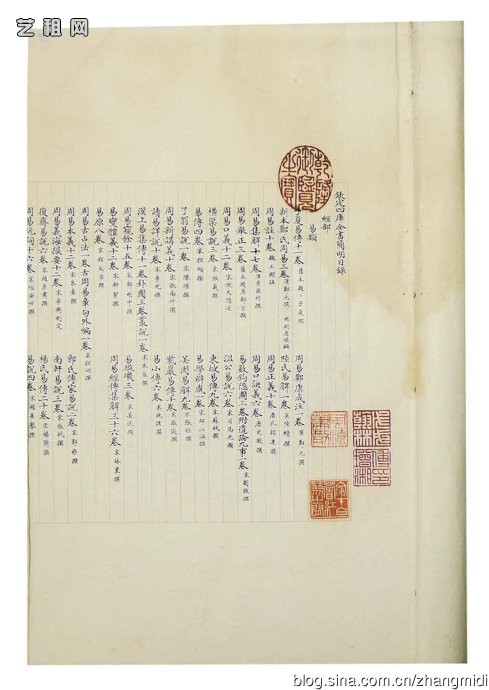 艺租网
乾隆御覽之寶
欽定四庫全書簡明目錄
經部
易類
子夏易傳十一卷 舊本題卜子夏撰
新本鄭氏周易三卷
周易註十卷 魏王弼註
周易集解十七卷 唐李鼎祚撰
周易舉正三卷 舊本題唐郭京撰
周易口義十二卷 宋倪天隱述
橫渠易說三卷 宋張載撰
易傳四卷 宋程頤撰
了翁易說一卷 宋陳瓘撰
周易新講義十卷 宋耿南仲撰
讀易詳說十卷 宋李光撰
漢上易集傳十一卷卦圖三卷叢說一卷 宋朱震撰
周易窺餘十五卷 宋鄭剛中撰
易變體義十二卷 宋都絜撰
易原八卷 宋程大昌撰
周易古占法一卷古周易章句外編一卷 宋程迥撰
周易本義十二卷 宋朱子撰
周易義海撮要十二卷 宋李衡刪定
復齋易說六卷 宋趙彥肅撰
周易玩詞十六卷 宋項安世撰
周易鄭康成註一卷 漢鄭元撰
陸氏易解一卷 吳陸績撰
周易正義十卷 唐孔穎達撰
周易口訣義六卷 唐史徵撰
易數鈎隱圖三卷附遺論九事一卷 宋劉牧撰
溫公易說六卷 宋司馬光撰
東坡易傳九卷 宋蘇軾撰
易學辨惑一卷 宋邵伯溫撰
吳園周易解九卷 宋張根撰
紫巖易傳十卷 宋張浚撰
易小傳六卷 宋沈該撰
易璇璣三卷 宋吳沆撰
周易經傳集解三十六卷 宋林栗撰
郭氏傳家易說十一卷 宋郭雍撰
南軒易說三卷 宋張栻撰
楊氏易傳二十卷 宋楊簡撰
易說四卷 宋趙善譽撰
blog.sina.com.cn/zhangmidi